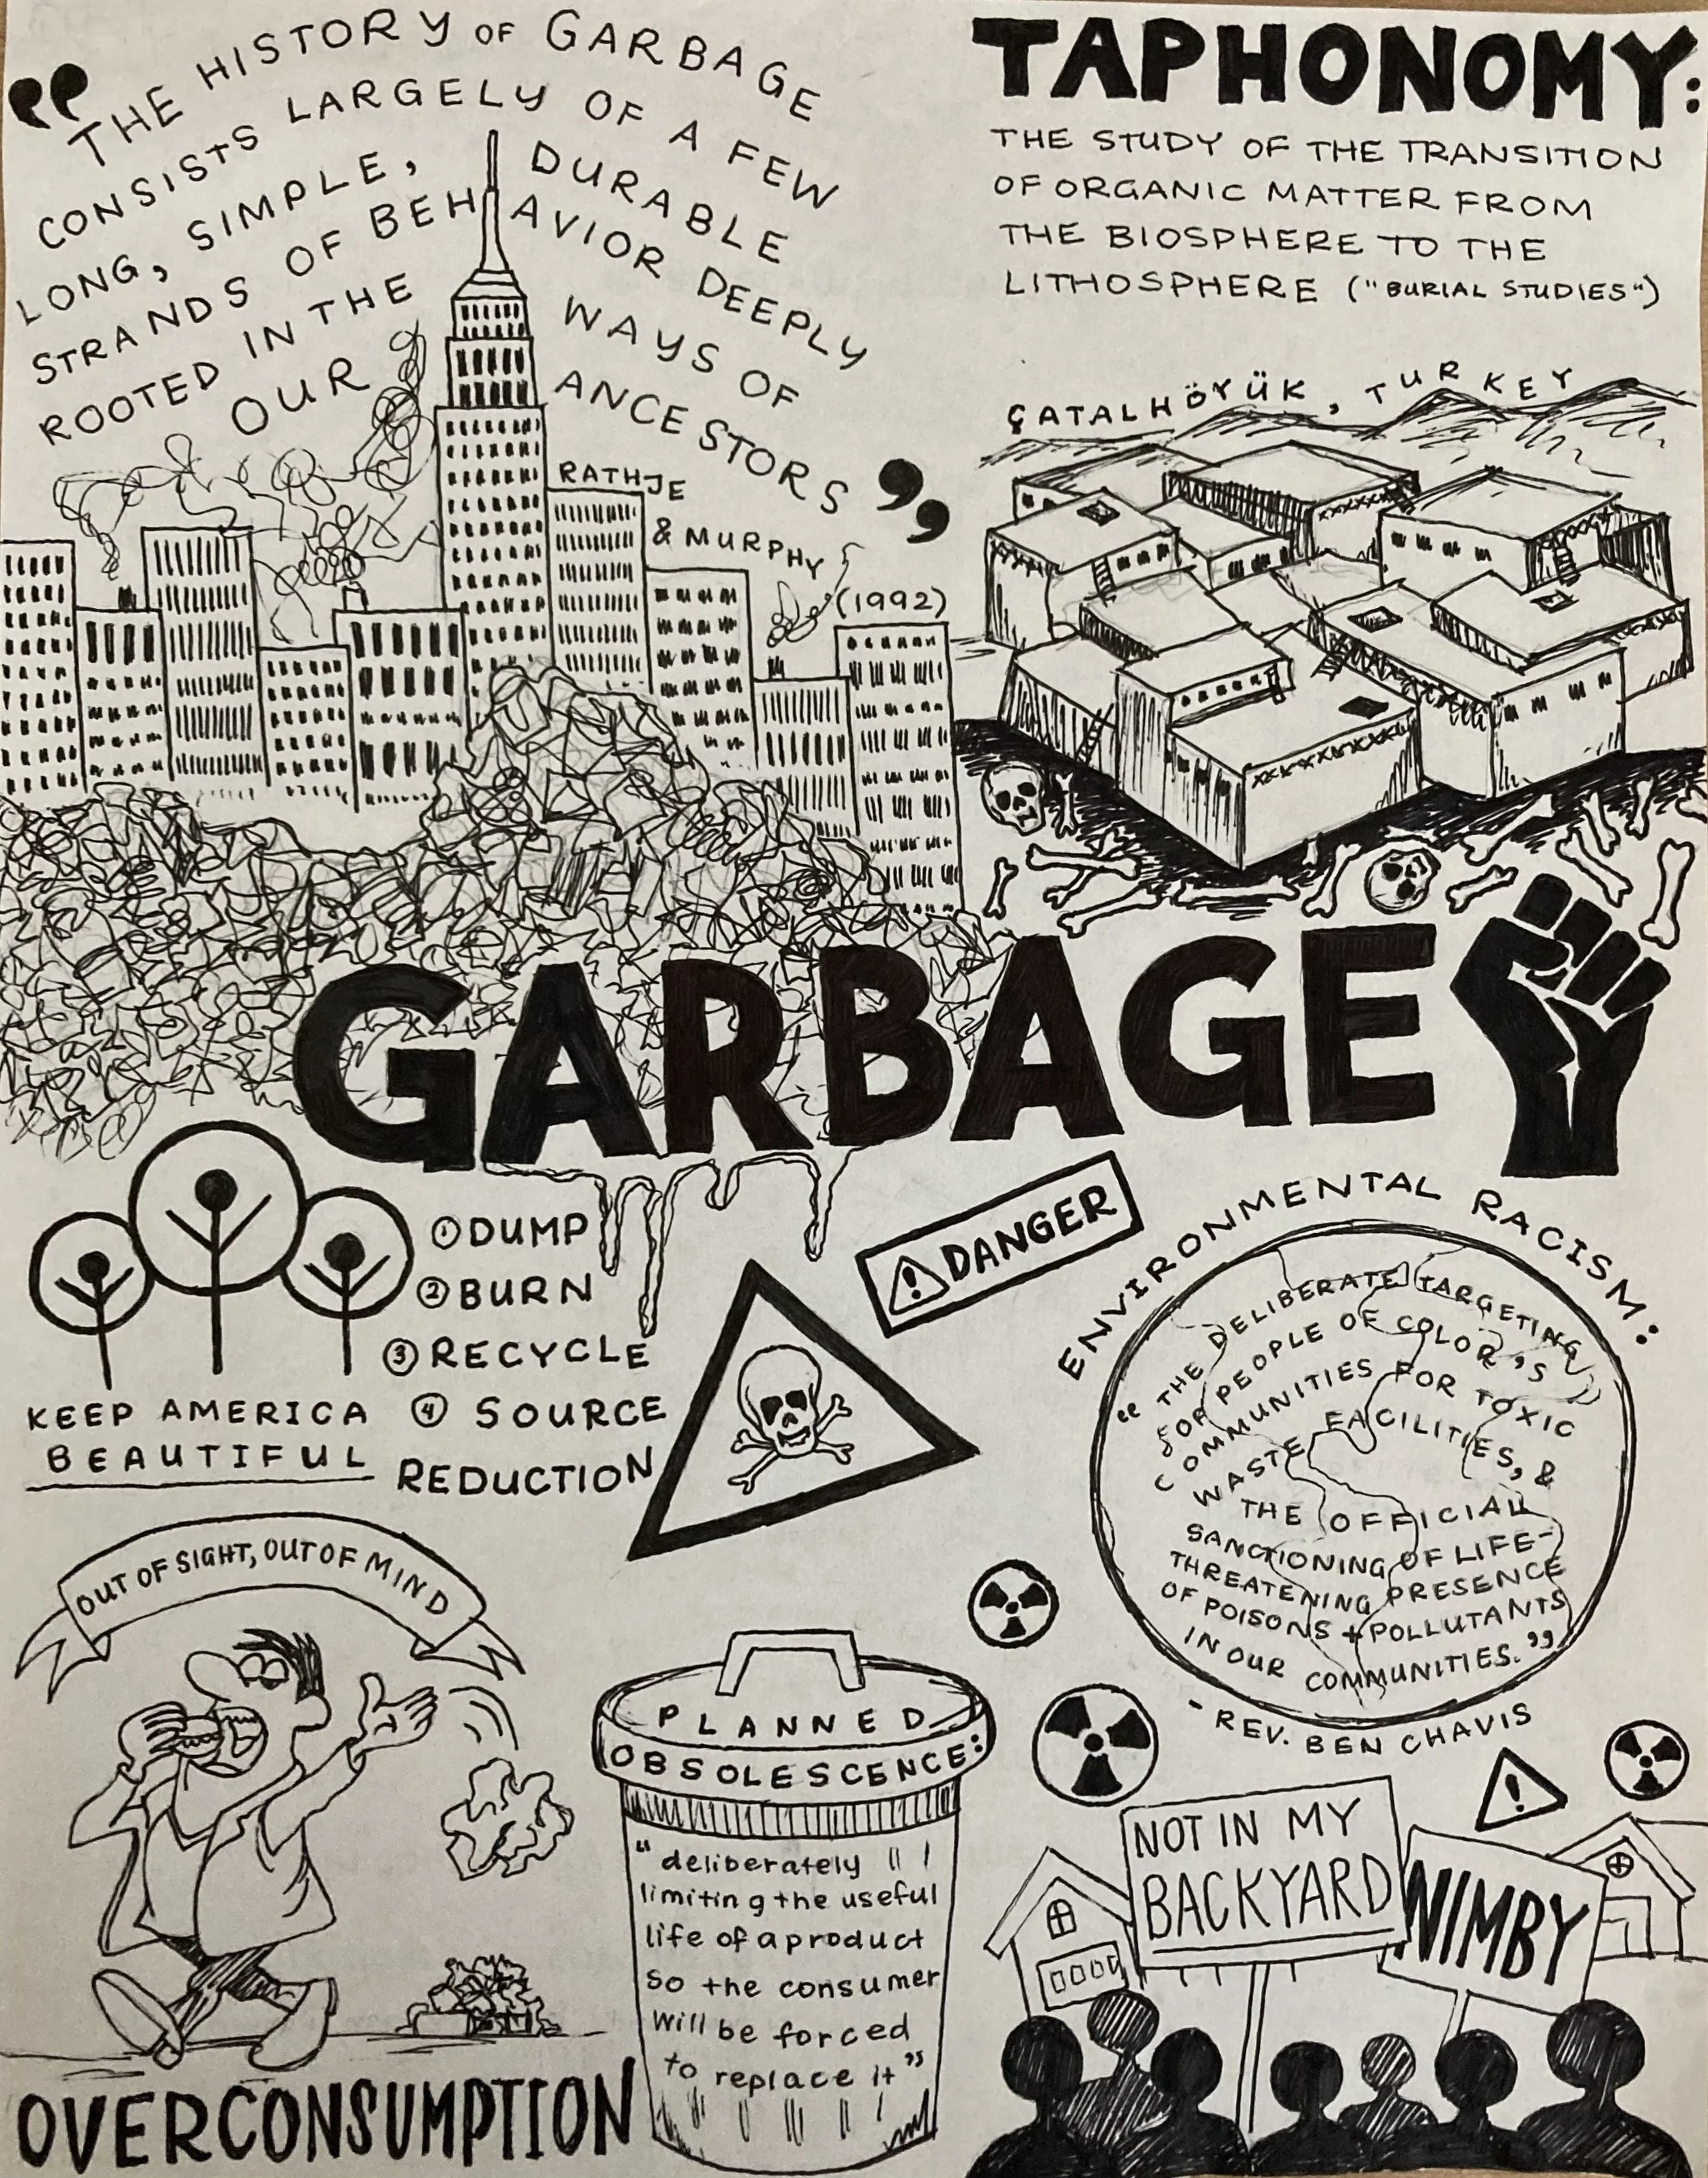 “THE HISTORY OF GARBAGE
CONSISTS LARGELY OF A FEW
LONG, SIMPLE, DURABLE
STRANDS OF BEHAVIOR DEEPLY
ROOTED IN THE WAYS OF
OUR ANCESTORS”
RATHJE
& MURPHY
(1992)
TAPHONOMY:
THE STUDY OF THE TRANSITION
OF ORGANIC MATTER FROM
THE BIOSPHERE TO THE
LITHOSPHERE ("BURIAL STUDIES")
ÇATALHÖYÜK, TURKEY
GARBAGE
KEEP AMERICA
BEAUTIFUL
① DUMP
② BURN
③ RECYCLE
④ SOURCE
REDUCTION
DANGER
ENVIRONMENTAL RACISM:
“THE DELIBERATE TARGETING
FOR PEOPLE OF COLOR'S
COMMUNITIES FOR TOXIC
WASTE FACILITIES, &
THE OFFICIAL
SANCTIONING OF LIFE-
THREATENING PRESENCE
OF POISONS + POLLUTANTS
IN OUR COMMUNITIES.”
- REV. BEN CHAVIS
OUT OF SIGHT, OUT OF MIND
OVERCONSUMPTION
PLANNED
OBSOLESCENCE:
“deliberately
limiting the useful
life of a product
so the consumer
will be forced
to replace it”
NOT IN MY
BACKYARD
NIMBY